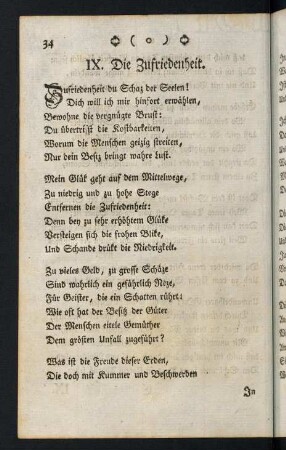 34 ( o )
IX. Die Zufriedenheit.
Zufriedenheit du Schaz der Seelen!
Dich will ich mir hinfort erwählen,
Bewohne die vergnügte Brust:
Du übertrifst die Kostbarkeiten,
Worum die Menschen geizig streiten,
Nur dein Besiz bringt wahre Lust.
Mein Glük geht auf dem Mittelwege,
Zu niedrig und zu hohe Stege
Entfernen die Zufriedenheit:
Denn bey zu sehr erhöhtem Glüke
Versteigen sich die frohen Blike,
Und Schande drükt die Niedrigkeit.
Zu vieles Geld, zu grosse Schäze
Sind wahrlich ein gefährlich Neze,
Für Geister, die ein Schatten rührt:
Wie oft hat der Besitz der Güter
Der Menschen eitele Gemüther
Dem grösten Unfall zugeführt?
Was ist die Freude dieser Erden,
Die doch mit Kummer und Beschwerden
In